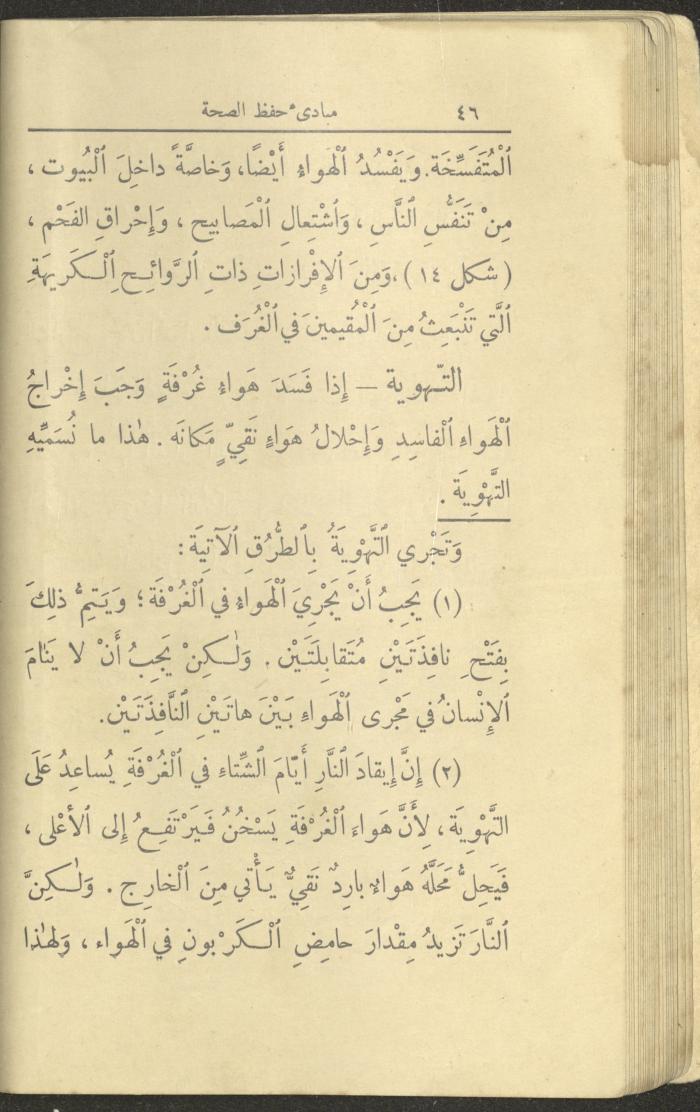 ٤٦ مبادىء حفظ الصحة
ٱلْمُتَفَسِّخَة. وَيَفْسُدُ ٱلْهَواءُ أَيْضًا، وَخاصَّةً داخِلَ ٱلْبُيوت ،
مِنْ تَنَفُّسِ ٱلنَّاسِ ، وَٱشْتِعالِ ٱلْمَصابيح ، وَإِحْراقِ الفَحْم ،
( شكل ١٤ )،وَمِنَ ٱلإِفْرازاتِ ذاتِ ٱلرَّوائِحِ ٱلْكَريهَةِ
ٱلَّتي تَنْبَعِثُ مِنَ ٱلْمُقيمينَ في ٱلْغُرَف .
التّهوية – إِذا فَسَدَ هَواءُ غُرْفَةٍ وَجَبَ إِخْراجُ
ٱلْهَواءِ ٱلْفاسِدِ وَإِحْلالُ هَوَاءٍ نَقِيٍّ مَكانَه . هٰذا ما نُسَمِّيهِ
التَّهْوِيَة .
وَتَجْري ٱلتَّهْوِيَةُ بِٱلطُّرُقِ ٱلآتِيَة :
(١) يَجِبُ أَنْ يَجْرِيَ ٱلْهَواءُ في ٱلْغُرْفَة ؛ وَيَتِمُّ ذٰلِكَ
بِفَتْحِ نافِذَتَيْنِ مُتَقابِلَتَيْن . وَلٰكِنْ يَجِبُ أَنْ لا يَنَامَ
ٱلإِنْسانُ في مَجْرى ٱلْهَواءِ بَيْنَ هاتَيْنِ ٱلنَّافِذَتَيْن.
(٢) إِنَّ إِيقادَ ٱلنَّارِ أَيَّامَ ٱلشِّتاءِ في ٱلْغُرْفَةِ يُساعِدُ عَلَى
التَّهْوِيَة ، لِأَنَّ هَواءَ ٱلْغُرْفَةِ يَسْخُنُ فَيَرْتَفِعُ إِلى ٱلأَعْلى ،
فَيَحِلُّ مَحَلَّهُ هَواءٌ بارِدٌ نَقِيٌّ يَأْتي مِنَ ٱلْخارِج . وَلٰكِنَّ
ٱلنَّارَ تَزيدُ مِقْدارَ حامِضِ ٱلْكَرْبونِ في ٱلْهَواء ، وَلِهٰذا